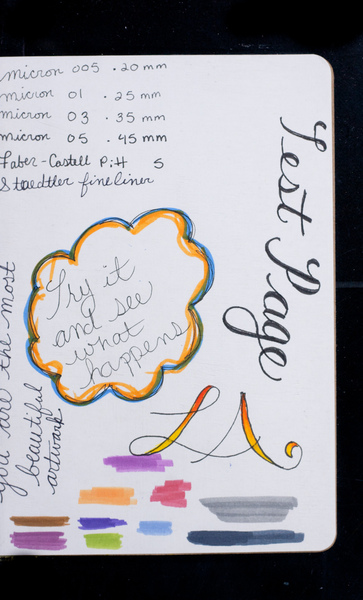 micron 005 . 20 mm
micron 01 . 25 mm
micron 03 . 35 mm
micron 05 . 45 mm
Faber-Castell Pitt S
Staedtler fineliner
Test Page
Try it
and see
what
happens
you are the most
beautiful
artwork